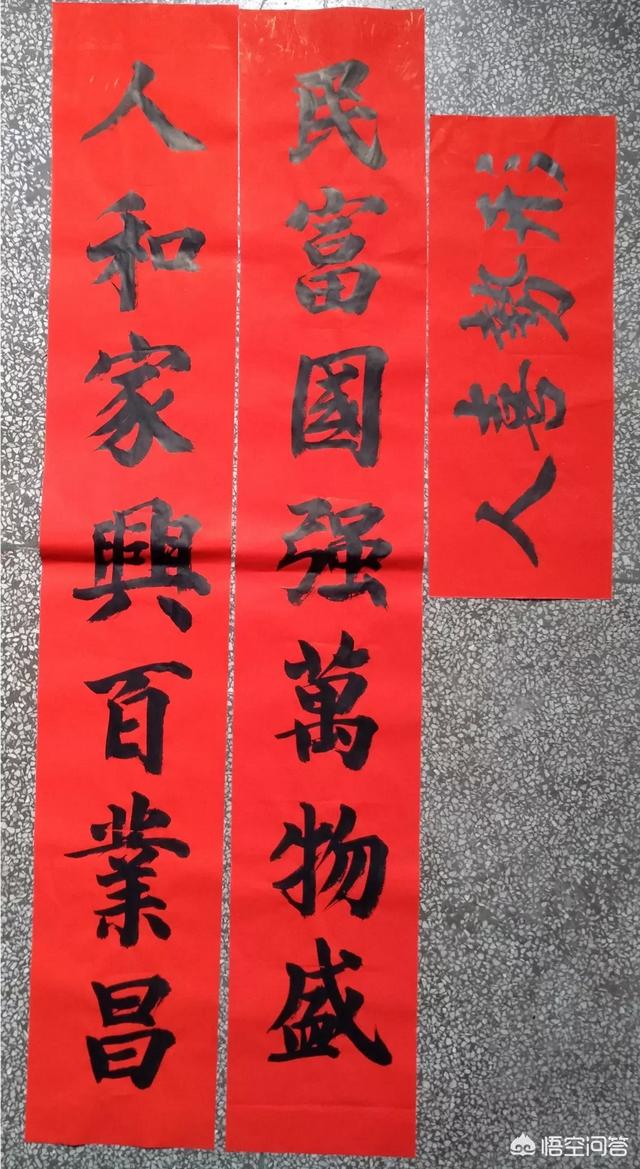 形勢喜人
民富國强萬物盛
人和家興百業昌
悟空问答